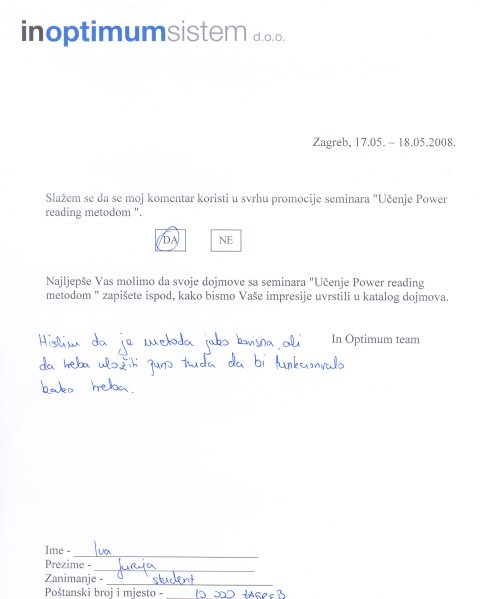 inoptimumsistem d.o.o.
Zagreb, 17.05. – 18.05.2008.
Slažem se da se moj komentar koristi u svrhu promocije seminara "Učenje Power
reading metodom ".
DA NE
Najljepše Vas molimo da svoje dojmove sa seminara "Učenje Power reading
metodom " zapišete ispod, kako bismo Vaše impresije uvrstili u katalog dojmova.
In Optimum team
Mislim da je metoda jako korisna, ali
da treba uložiti puno truda da bi funkcioniralo
kako treba.
Ime - Iva
Prezime -
Zanimanje - student
Poštanski broj i mjesto - 10 000 ZAGREB